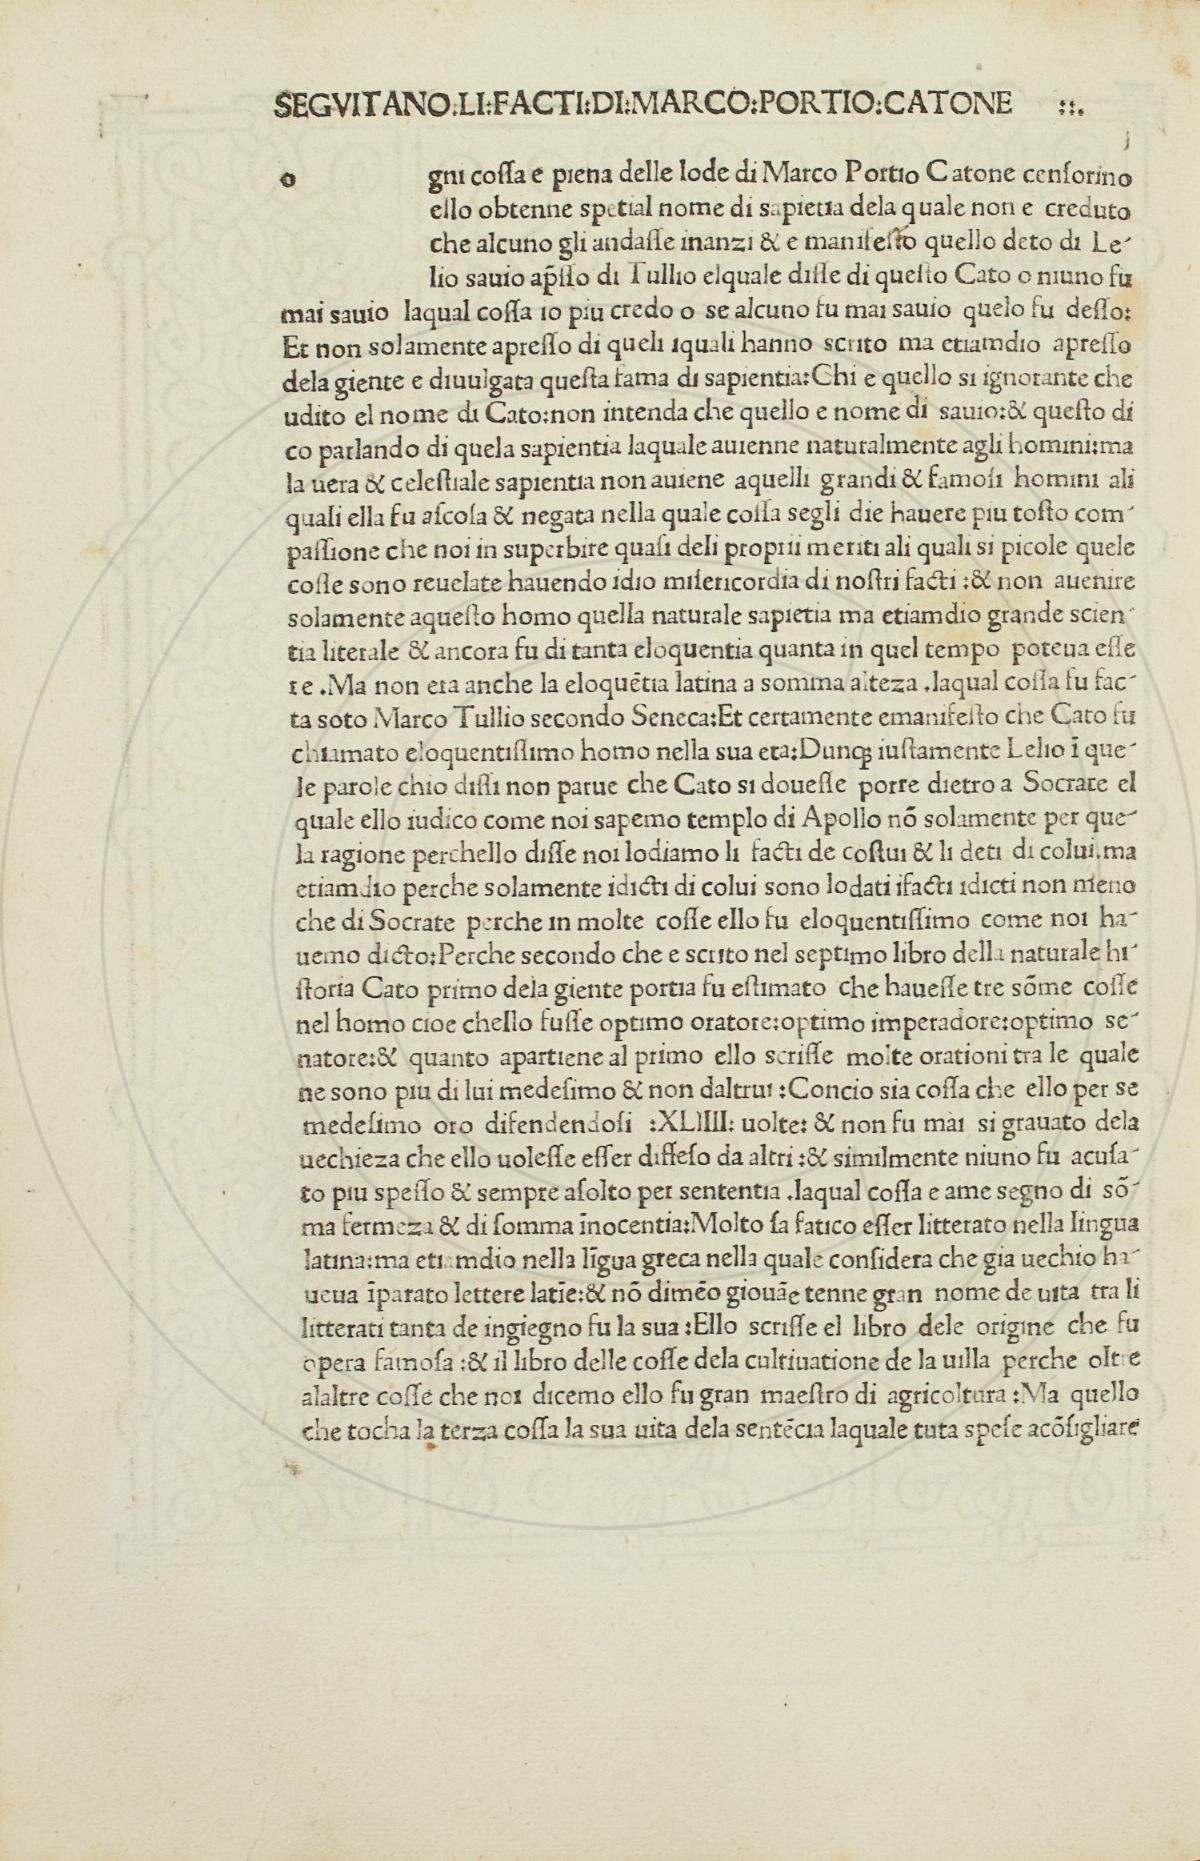 SEGVITANO:LI:FACTI:DI:MARCO:PORTIO:CATONE ::.
o gni coſſa e piena delle lode di Marco Portio Catone cenſorino
ello obtenne spetial nome di sapietia dela quale non e creduto
che alcuno gli andaſſe inanzi & e manifeſto quello deto di Le-
lio sauio ap̄ſſo di Tullio elquale diſſe di queſto Cato o niuno fu
mai sauio laqual coſſa io piu credo o se alcuno fu mai sauio quelo fu deſſo:
Et non solamente apreſſo di queli iquali hanno scrito ma etiamdio apreſſo
dela giente e diuulgata queſta fama di sapientia:Chi e quello si ignorante che
udito el nome di Cato:non intenda che quello e nome di sauio:& queſto di
co parlando di quela sapientia laquale auienne naturalmente agli homini:ma
la uera & celeſtiale sapientia non auiene aquelli grandi & famoſi homini ali
quali ella fu aſcoſa & negata nella quale coſſa segli die hauere piu toſto com-
paſſione che noi in superbire quaſi deli proprii meriti ali quali si picole quele
coſſe sono reuelate hauendo idio miſericordia di noſtri facti :& non auenire
solamente aqueſto homo quella naturale sapietia ma etiamdio grande scien-
tia literale & ancora fu di tanta eloquentia quanta in quel tempo poteua eſſe
re .Ma non era anche la eloquētia latina a somma alteza .laqual coſſa fu fac-
ta soto Marco Tullio secondo Seneca:Et certamente emanifeſto che Cato fu
chiamato eloquentiſſimo homo nella sua eta:Dunq; iuſtamente Lelio ī que-
le parole chio diſſi non parue che Cato si doueſſe porre dietro a Socrate el
quale ello iudico come noi sapemo templo di Apollo nō solamente per que-
la ragione perchello diſſe noi lodiamo li facti de coſtui & li deti di colui.ma
etiamdio perche solamente idicti di colui sono lodati ifacti idicti non meno
che di Socrate perche in molte coſſe ello fu eloquentiſſimo come noi ha-
uemo dicto:Perche secondo che e scrito nel septimo libro della naturale hi-
ſtoria Cato primo dela giente portia fu eſtimato che haueſſe tre sōme coſſe
nel homo cioe chello fuſſe optimo oratore:optimo imperadore:optimo se-
natore:& quanto apartiene al primo ello scriſſe molte orationi tra le quale
ne sono piu di lui medeſimo & non daltrui :Concio sia coſſa che ello per se
medeſimo oro difendendoſi :XLIIII: uolte: & non fu mai si grauato dela
uechieza che ello uoleſſe eſſer diffeſo da altri :& similmente niuno fu acuſa-
to piu speſſo & sempre aſolto per sententia .laqual coſſa e ame segno di sō-
ma fermeza & di ſomma īnocentia:Molto ſa fatico eſſer litterato nella lingua
latina:ma etiamdio nella līgua greca nella quale conſidera che gia uechio ha-
ueua īparato lettere latīe:& nō dimēo giouāe tenne gran nome de uita tra li
litterati tanta de ingiegno fu la sua :Ello scriſſe el libro dele origine che fu
opera famoſa :& il libro delle coſſe dela cultiuatione de la uilla perche oltre
alaltre coſſe che noi dicemo ello fu gran maeſtro di agricoltura :Ma quello
che tocha la terza coſſa la sua uita dela sentēcia laquale tuta speſe acōſigliare